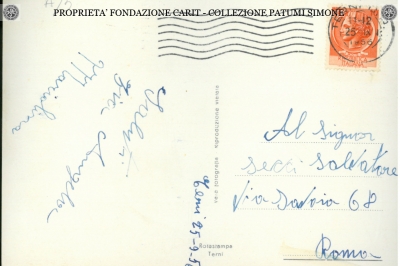 PROPRIETA' FONDAZIONE CARIT - COLLEZIONE PATUMI SIMONE
Saluti
Angela
Mariolina
Terni 25-9-5
vera fotografia
riproduzione vietata
Rotostampa
Terni
Al Signor
Secci Salvatore
Via Savoia 68
Roma